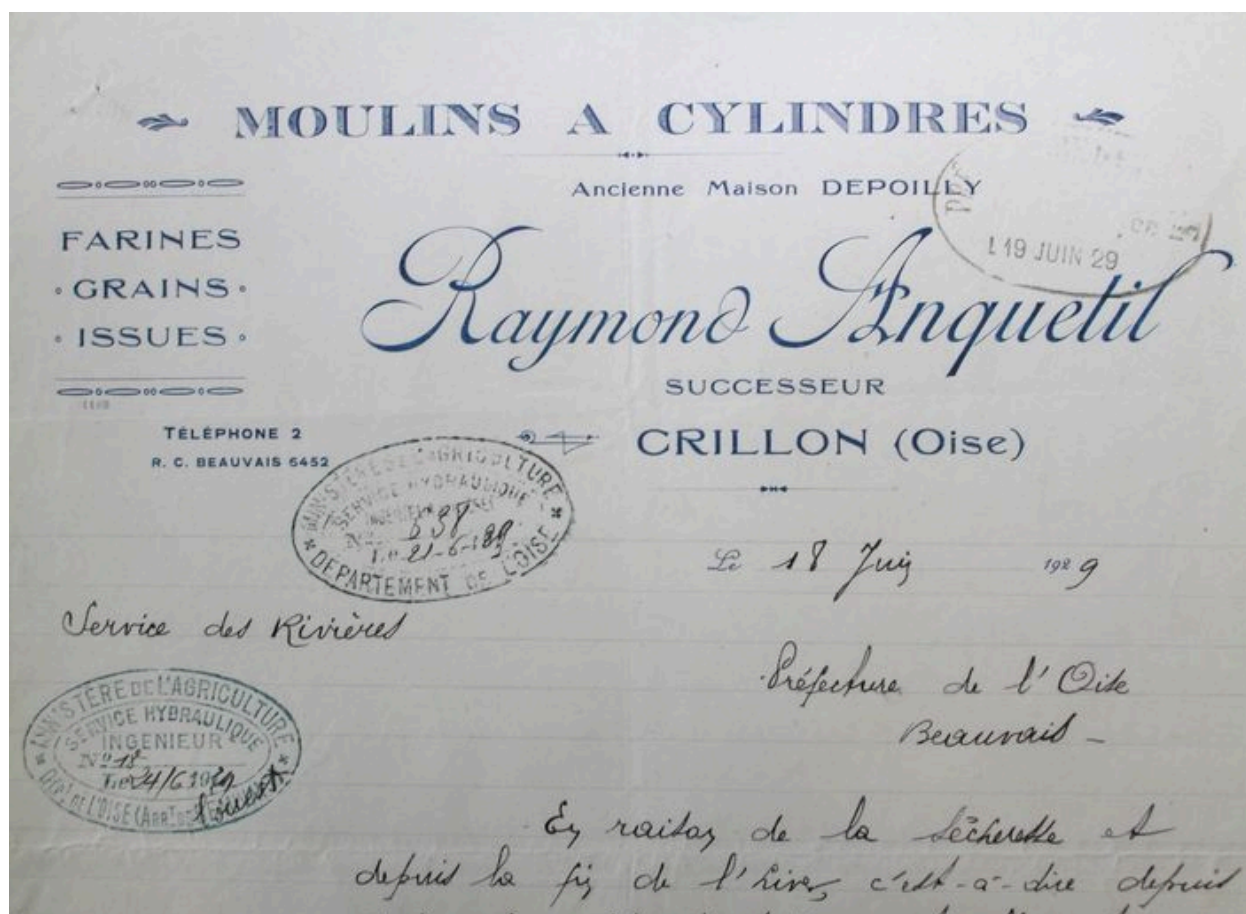 MOULINS A CYLINDRES
Ancienne Maison DEPOILLY
FARINES
GRAINS
ISSUES
Raymond Anquetil
SUCCESSEUR
CRILLON (Oise)
TÉLÉPHONE 2
R. C. BEAUVAIS 6452
19 JUIN 29
MINISTÈRE DE L'AGRICULTURE
SERVICE HYDRAULIQUE
No 538
Le 21-6-29
DEPARTEMENT DE L'OISE
Le 18 Juin 1929
Service des Rivières
Préfecture de l'Oise
Beauvais
MINISTÈRE DE L'AGRICULTURE
SERVICE HYDRAULIQUE
INGENIEUR
No 18
Le 24/6 1929
DEPT DE L'OISE (ARRT DE
En raison de la sècheresse et
depuis la fin de l'hiver, c'est-à-dire depuis